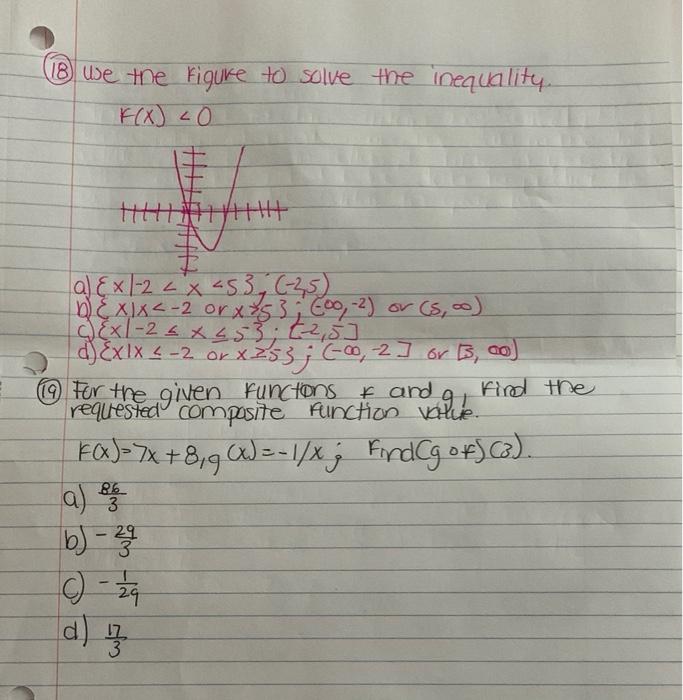 18 use the Figure to solve the inequality.
F(x) < 0
a) {x|-2 < x < 5}; (-2,5)
b) {x|x < -2 or x > 5}; (-∞,-2) or (5, ∞)
c) {x|-2 ≤ x ≤ 5}; [-2,5]
d) {x|x ≤ -2 or x ≥ 5}; (-∞, -2] or [5, ∞)
19 For the given Functions F and g, Find the
requested composite Function value.
F(x)=7x+8, g(x)=-1/x; Find (g o F)(3).
a) 86/3
b) -29/3
c) -1/29
d) 17/3